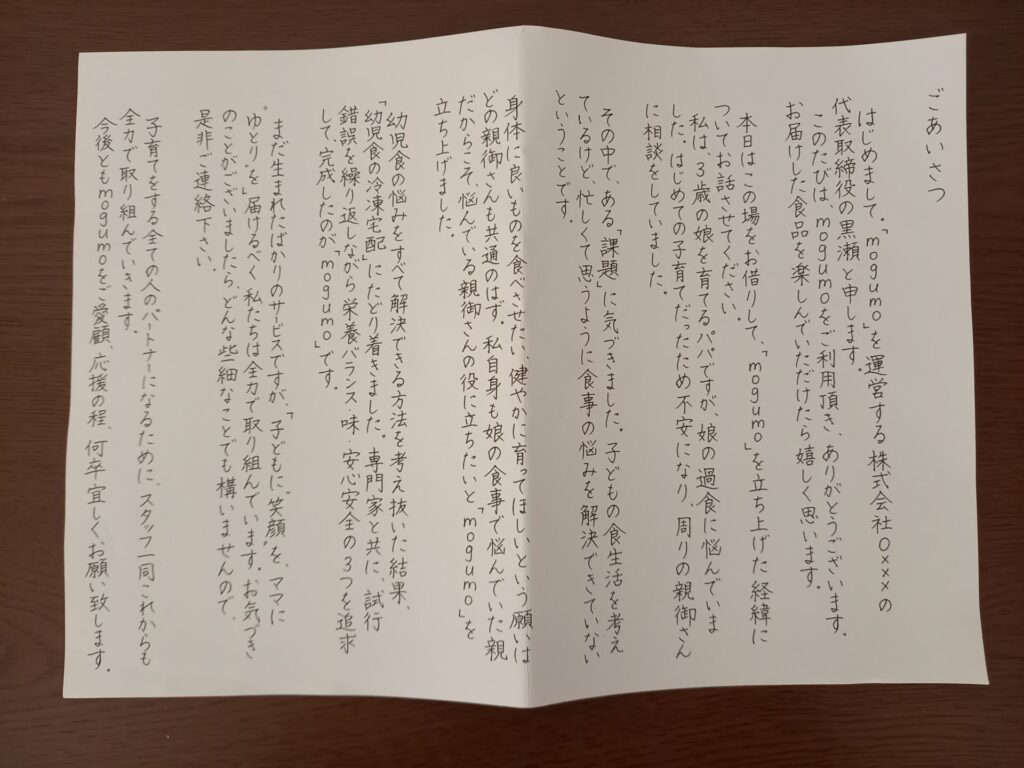 ごあいさつ
はじめまして。「mogumo」を運営する株式会社Oxxxの
代表取締役の黒瀬と申します。
このたびは、mogumoをご利用頂き、ありがとうございます。
お届けした食品を楽しんでいただけたら嬉しく思います。
本日はこの場をお借りして、「mogumo」を立ち上げた経緯に
ついてお話させてください。
私は、3歳の娘を育てるパパですが、娘の過食に悩んでいま
した。はじめての子育てだったため不安になり、周りの親御さん
に相談をしていました。
その中で、ある「課題」に気づきました。子どもの食生活を考え
ているけど、忙しくて思うように食事の悩みを解決できていない
ということです。
身体に良いものを食べさせたい、健やかに育ってほしいという願いは
どの親御さんも共通のはず。私自身も娘の食事で悩んでいた親
だからこそ、悩んでいる親御さんの役に立ちたいと「mogumo」を
立ち上げました。
幼児食の悩みをすべて解決できる方法を考え抜いた結果、
「幼児食の冷凍宅配」にたどり着きました。専門家と共に、試行
錯誤を繰り返しながら栄養バランス・味・安心安全の3つを追求
して、完成したのが「mogumo」です。
まだ生まれたばかりのサービスですが、「子どもに"笑顔"を、ママに
"ゆとり"を」届けるべく私たちは全力で取り組んでいます。お気づき
のことがございましたら、どんな些細なことでも構いませんので、
是非ご連絡下さい。
子育てをする全ての人のパートナーになるために、スタッフ一同これからも
全力で取り組んでいきます。
今後ともmogumoをご愛顧、応援の程、何卒宜しくお願い致します。